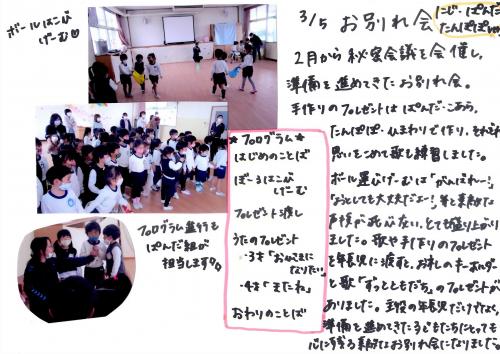 ボールはこび
げーむ♡
3/5 お別れ会
にじ・ぱんだ
たんぽぽ
2月から秘密会議を開催し、
準備を進めてきたお別れ会。
手作りのプレゼントはぱんだ・こあら、
たんぽぽ・ひまわりで作り、それぞれ
思いをこめて歌も練習しました。
ボール運びげーむは「がんばれー！」
「おとしても大丈夫だよー！」等と素敵な
声援が飛び交い、とても盛り上がり
ました。歌や手作りのプレゼント
を年長児に渡すと、お礼のキーホルダー
と歌「ずっとともだち」のプレゼントが
ありました。主役の年長児だけでなく、
準備を進めてきた子どもたちにとっても
心に残る素敵なお別れ会になりました。
★プログラム★
はじめのことば
ぼーるはこび
げーむ
プレゼント渡し
うたのプレゼント
・3才「おひさまに
なりたい」
・4才「またね」
おわりのことば
プログラム進行も
ぱんだ組が
担当します!!